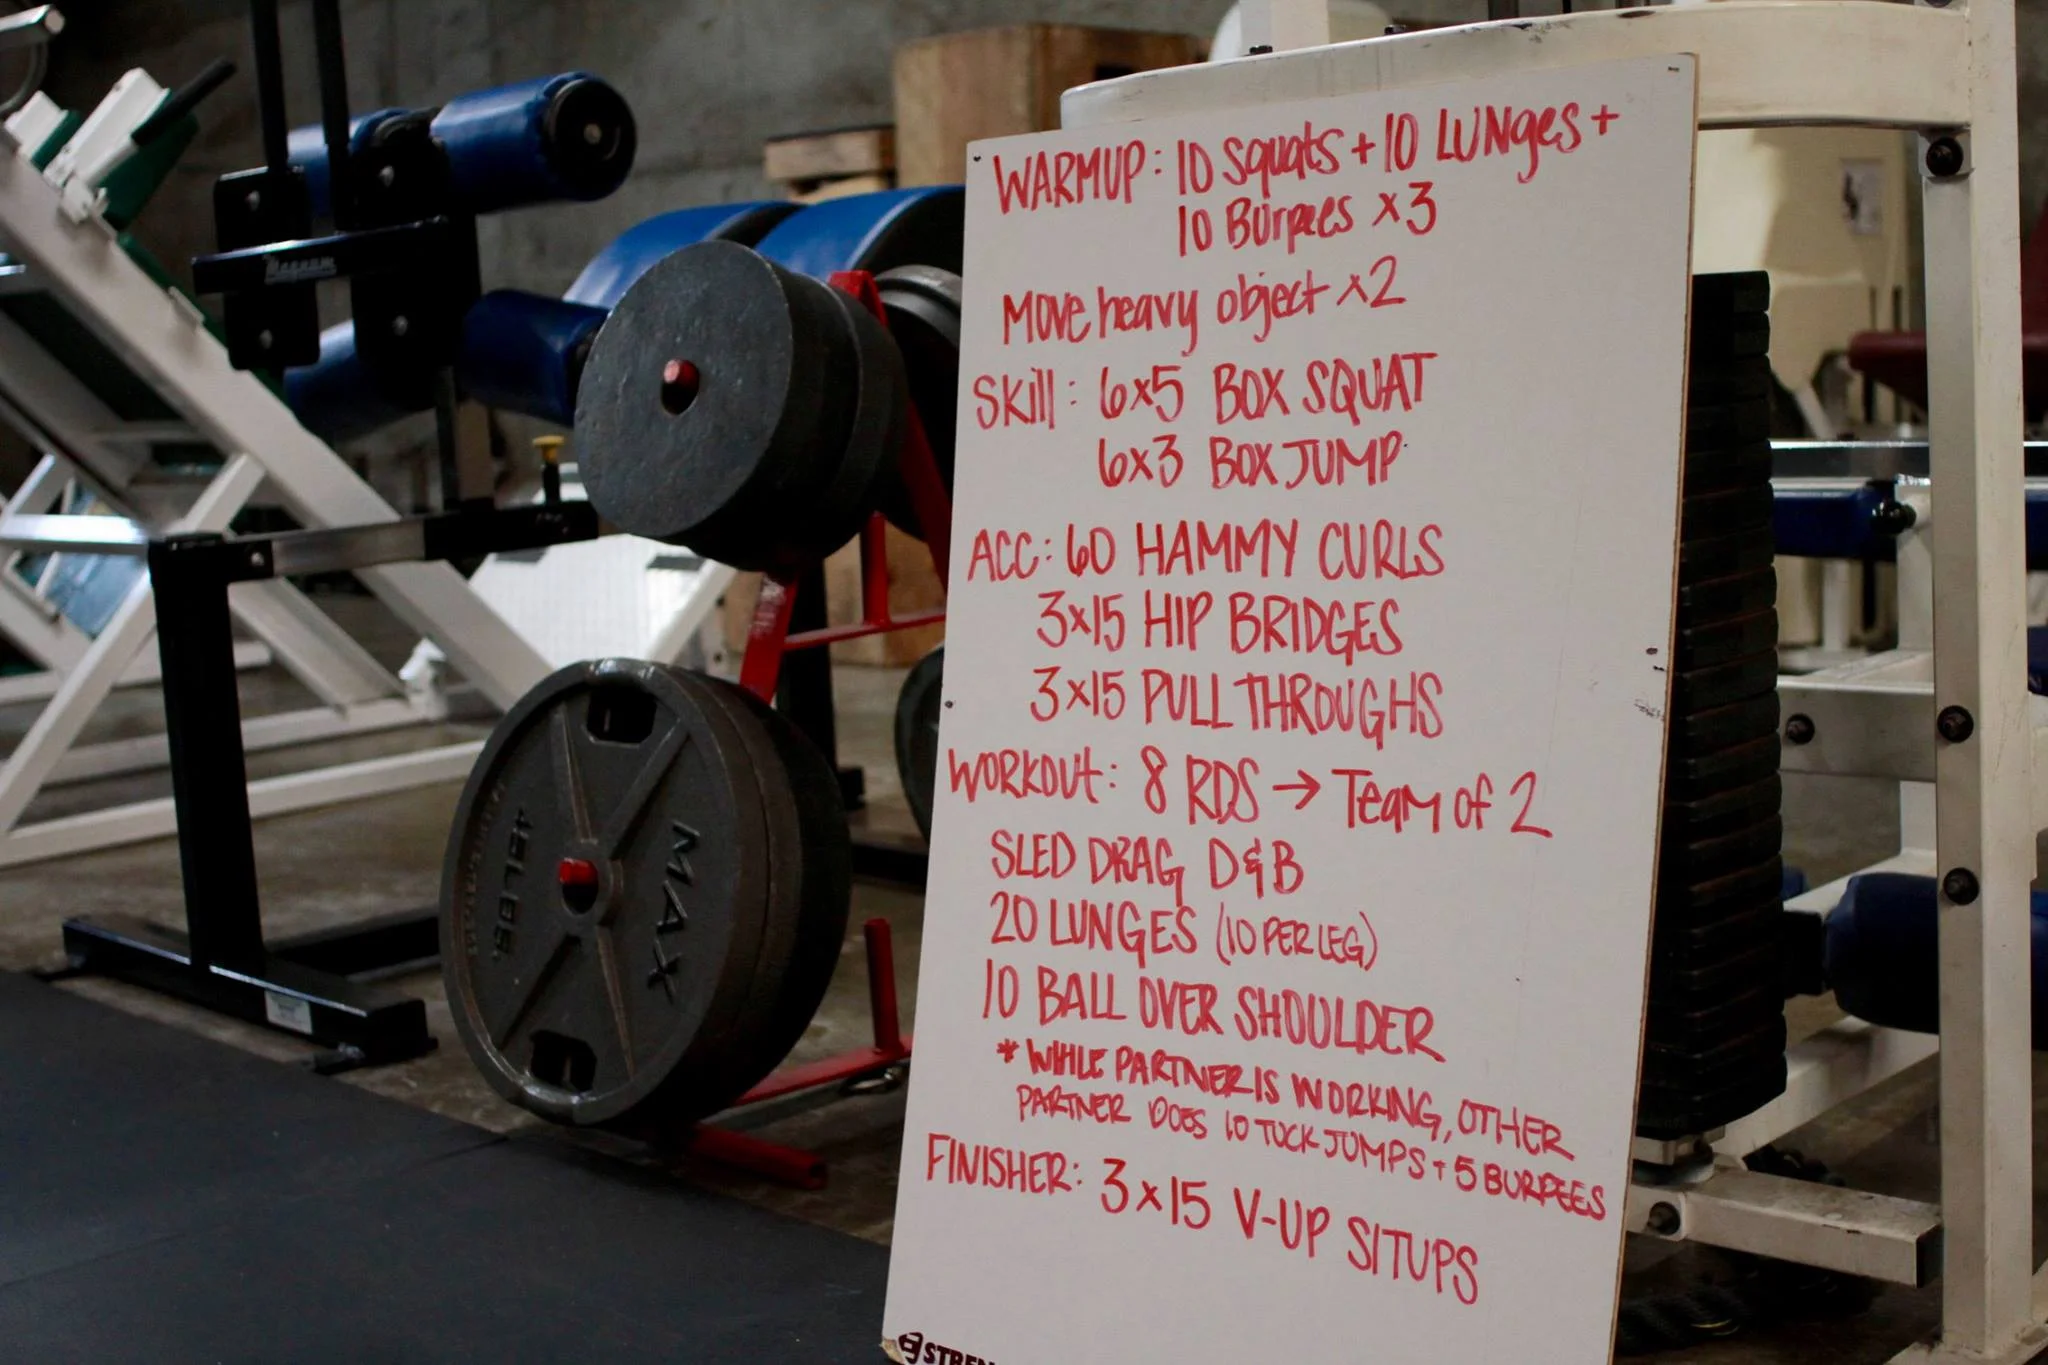 WARMUP: 10 Squats + 10 LUNges +
10 Burpees x3
Move heavy object x2
Skill: 6x5 BOX SQUAT
6x3 BOX JUMP
ACC: 60 HAMMY CURLS
3x15 HIP BRIDGES
3x15 PULL THROUGHS
WORKOUt: 8 RDS → Team of 2
SLED DRAG D&B
20 LUNGES (10 PER LEG)
10 BALL OVER SHOULDER
* WIHLE PARTNER IS WORKING, OTHER
PARTNER DOES 10 TUCK JUMPS + 5 BURPEES
FINISHER: 3x15 V-UP SITUPS
Magnum
MAX
45LBS.